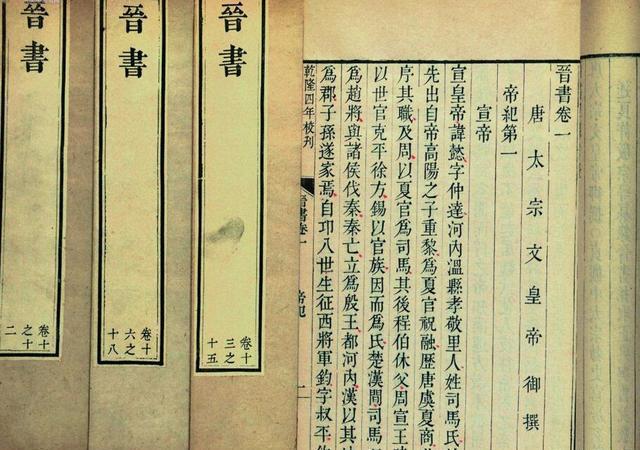 晉書卷一
唐太宗文皇帝御撰
帝紀第一
宣帝
宣皇帝諱懿字仲達河内溫縣孝敬里人姓司馬氏
先出自帝高陽之子重黎爲夏官祝融歷唐虞夏商
序其職及周以夏官爲司馬其後程伯休父周宣王
以世官克平徐方錫以官族因而爲氏楚漢間司馬
爲趙將與諸侯伐秦秦亡立爲殷王都河内漢以其
爲郡子孫遂家焉自卬八世生征西將軍鈞字叔平
乾隆四年校刊
晉書卷一
帝紀
一
晉書
卷十
三之
十五
晉書
卷十
六之
十八
晉書
卷十
之十
二